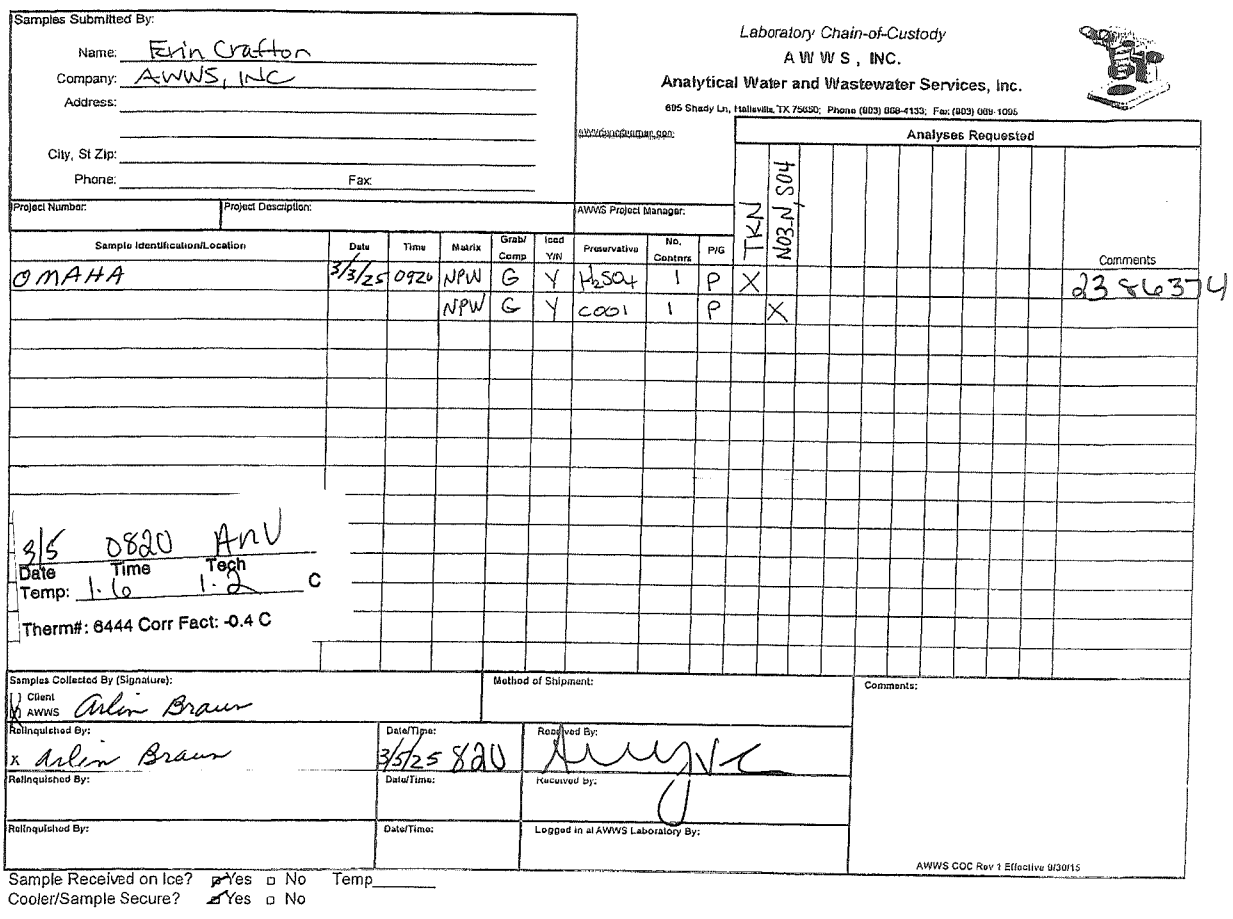 Samples Submitted By:
Name: Erin Crafton
Company: AWWS, INC
Address:
City, St Zip:
Phone: Fax:
Laboratory Chain-of-Custody
A W W S , INC.
Analytical Water and Wastewater Services, Inc.
605 Shady Ln, Hallsville, TX 75650; Phone (903) 668-4133; Fax (903) 668-1095
Analyses Requested
Project Number: Project Description: AWWS Project Manager:
TKN
NO3-N, SO4
Sample Identification/Location Date Time Matrix Grab/ Comp Iced Y/N Preservative No. Contnrs P/G Comments
OMAHA 3/3/25 0920 NPW G Y H2SO4 1 P X 2386374
NPW G Y COOl 1 P X
3/5 0820 AnV
Date Time Tech
Temp: 1.6 1.2 C
Therm#: 6444 Corr Fact: -0.4 C
Samples Collected By (Signature): Method of Shipment: Comments:
[ ] Client
[X] AWWS Arlin Braun
Relinquished By: Date/Time: Received By:
x Arlin Braun 3/5/25 820
Relinquished By: Date/Time: Received By:
Relinquished By: Date/Time: Logged in at AWWS Laboratory By:
AWWS COC Rev 1 Effective 9/30/15
Sample Received on Ice? Yes No Temp
Cooler/Sample Secure? Yes No